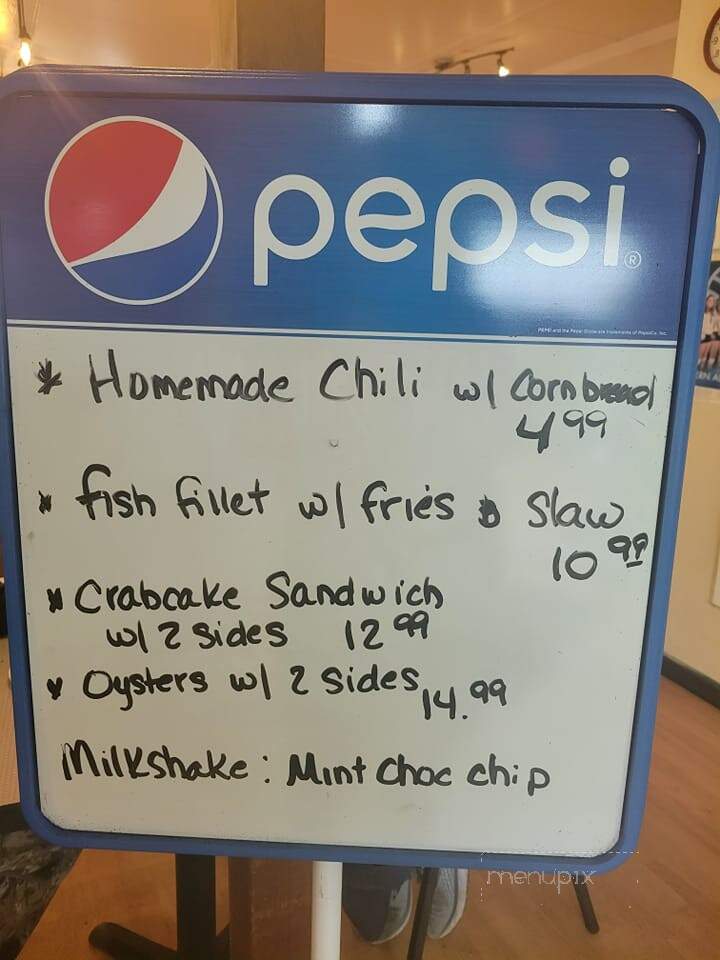 pepsi®
PEPSI and the Pepsi Globe are trademarks of PepsiCo, Inc.
* Homemade Chili w/ Cornbread
4 99
* fish fillet w/ fries & Slaw
10 99
* Crabcake Sandwich
w/ 2 sides 12 99
* Oysters w/ 2 sides 14.99
Milkshake: Mint Choc chip
menupix